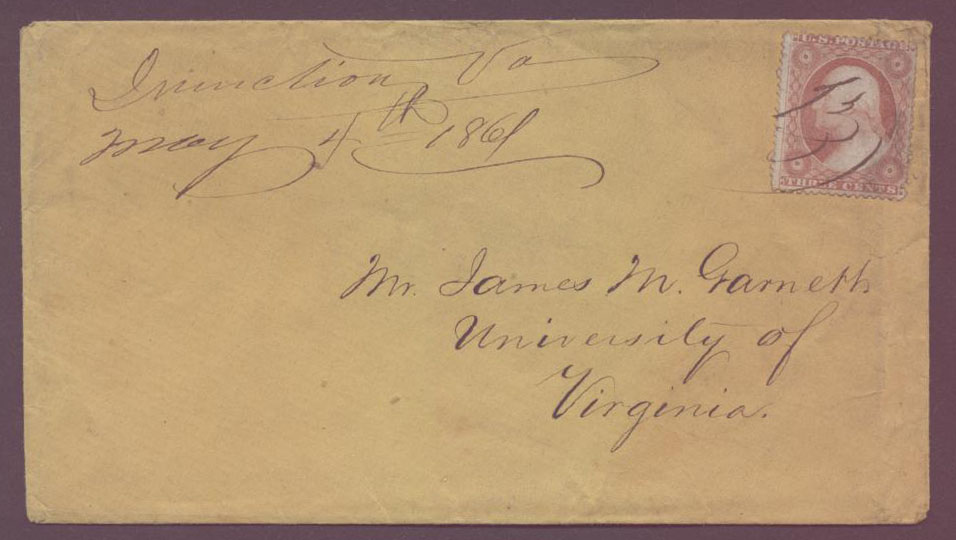 Junction Va
May 4th 1861
U.S. POSTAGE
3
THREE CENTS
Mr. James M. Garneth
University of
Virginia.